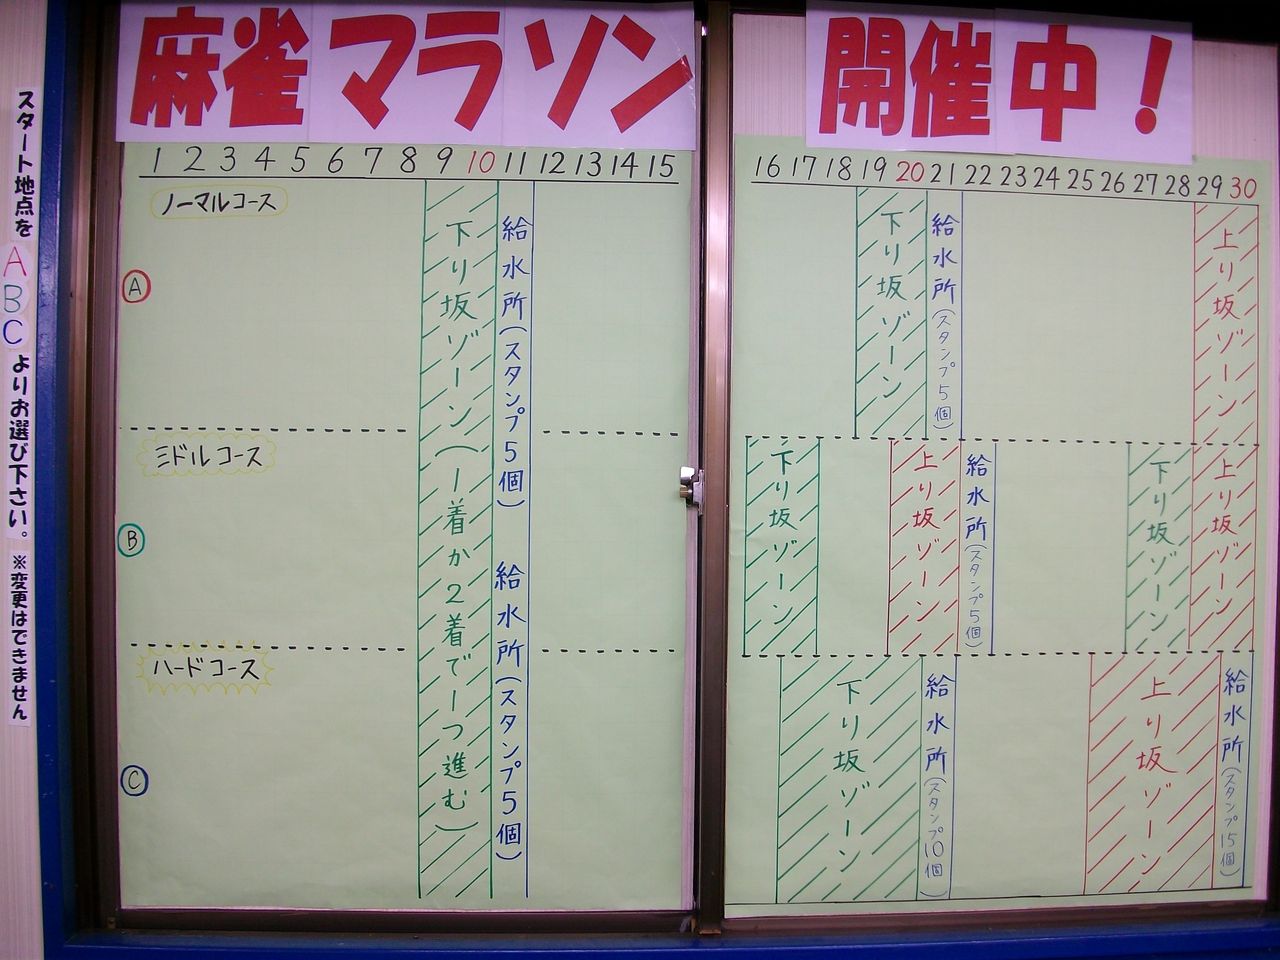 麻雀マラソン
開催中！
スタート地点を
A
B
C
よりお選び下さい。
※変更はできません
1 2 3 4 5 6 7 8 9 10 11 12 13 14 15
16 17 18 19 20 21 22 23 24 25 26 27 28 29 30
ノーマルコース
A
ミドルコース
B
ハードコース
C
下り坂ゾーン(1着か2着で1つ進む)
給水所(スタンプ5個)
給水所(スタンプ5個)
下り坂ゾーン
給水所(スタンプ5個)
上り坂ゾーン
下り坂ゾーン
上り坂ゾーン
給水所(スタンプ5個)
下り坂ゾーン
上り坂ゾーン
下り坂ゾーン
給水所(スタンプ10個)
上り坂ゾーン
給水所(スタンプ15個)